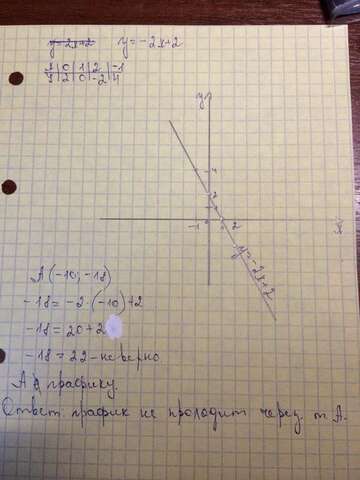 y=-2x+2 y=-2x+2
x 0 1 2 -1
y 2 0 -2 4
y
4
2
-1 0 1 2 x
y=-2x+2
A(-10; -18)
-18=-2·(-10)+2
-18=20+2
-18=22-неверно
A ∉ графику.
Ответ: график не проходит через т А.